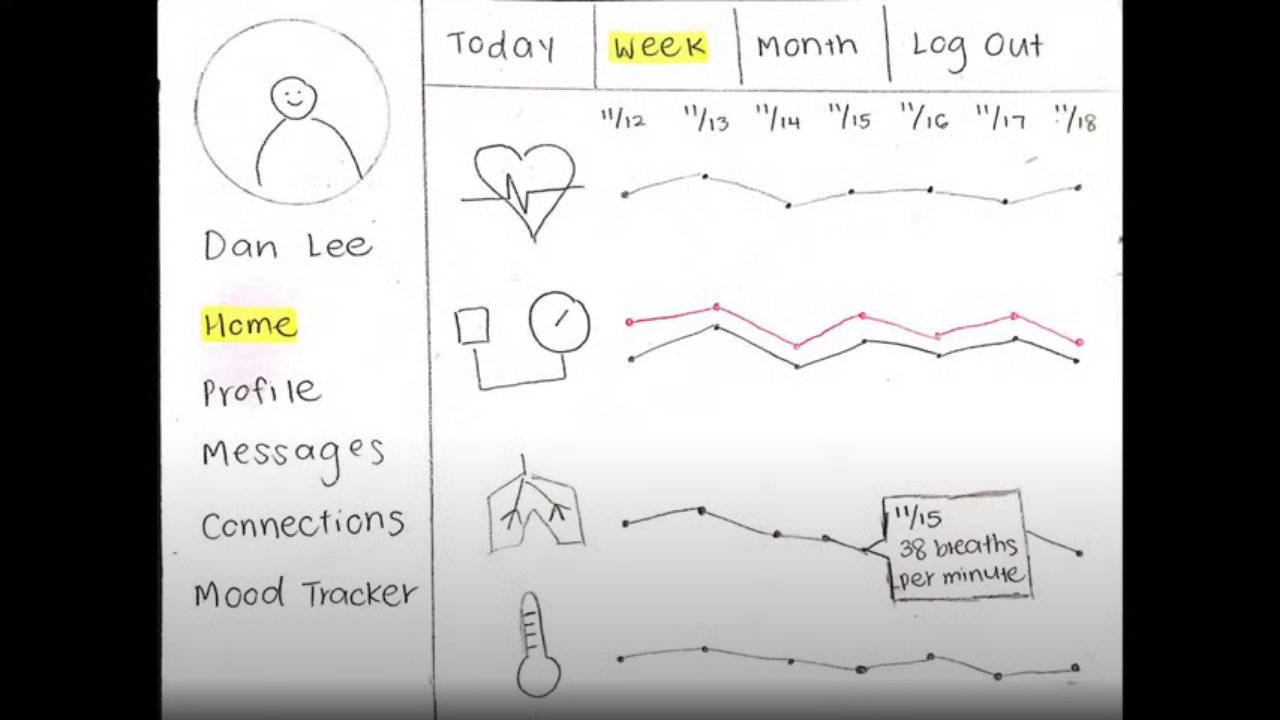 Today
Week
Month
Log Out
11/12 11/13 11/14 11/15 11/16 11/17 11/18
Dan Lee
Home
Profile
Messages
Connections
Mood Tracker
11/15
38 breaths
per minute